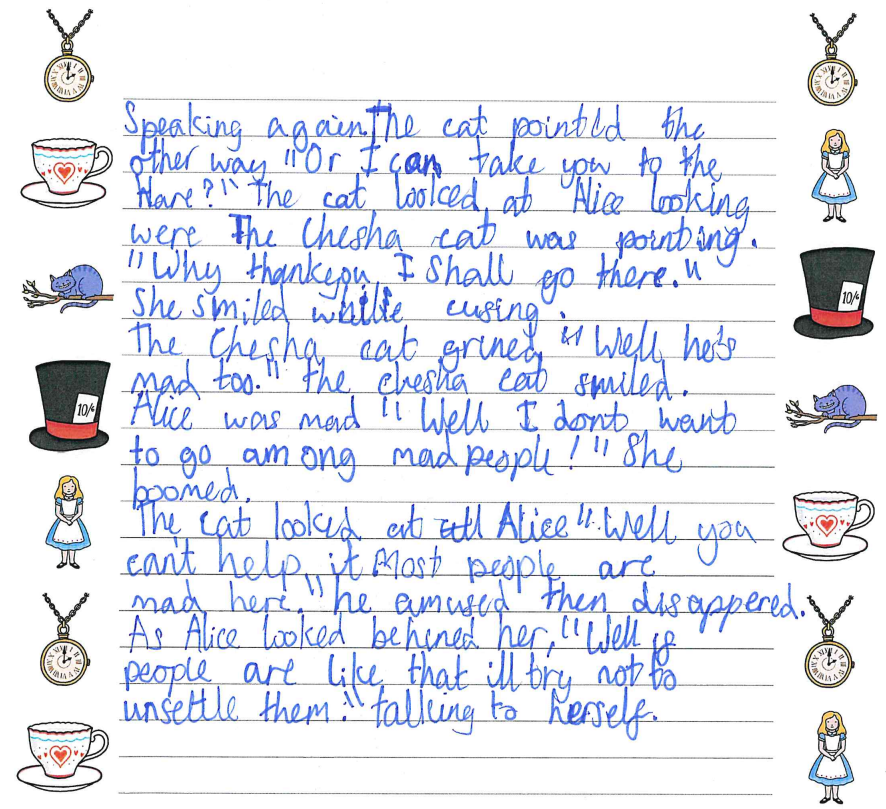 Speaking again, The cat pointed the
other way "Or I can take you to the
Hare?" The cat looked at Alice looking
were The Chesha cat was pointing.
"Why thankyou, I Shall go there."
She smiled while cusing.
The Chesha cat grined, "Well, he's
mad too." the chesha cat smiled.
Alice was mad "Well I dont want
to go among mad people!" She
boomed.
The cat looked at Alice". Well you
can't help it Most people are
mad here." he amused then disappered.
As Alice looked behined her, "Well if
people are like that ill try not to
unsettle them." talking to herself.
10/6
10/6